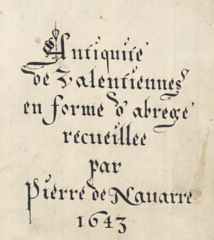 Antiquité
de Valentiennes
en forme d'abregé
recueillee
par
Pierre de Nauarre
1643